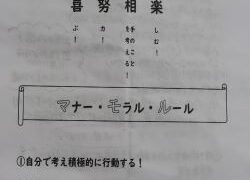 喜ぶ！
努力！
相手のことを考える！
楽しむ！
マナー・モラル・ルール
①自分で考え積極的に行動する！